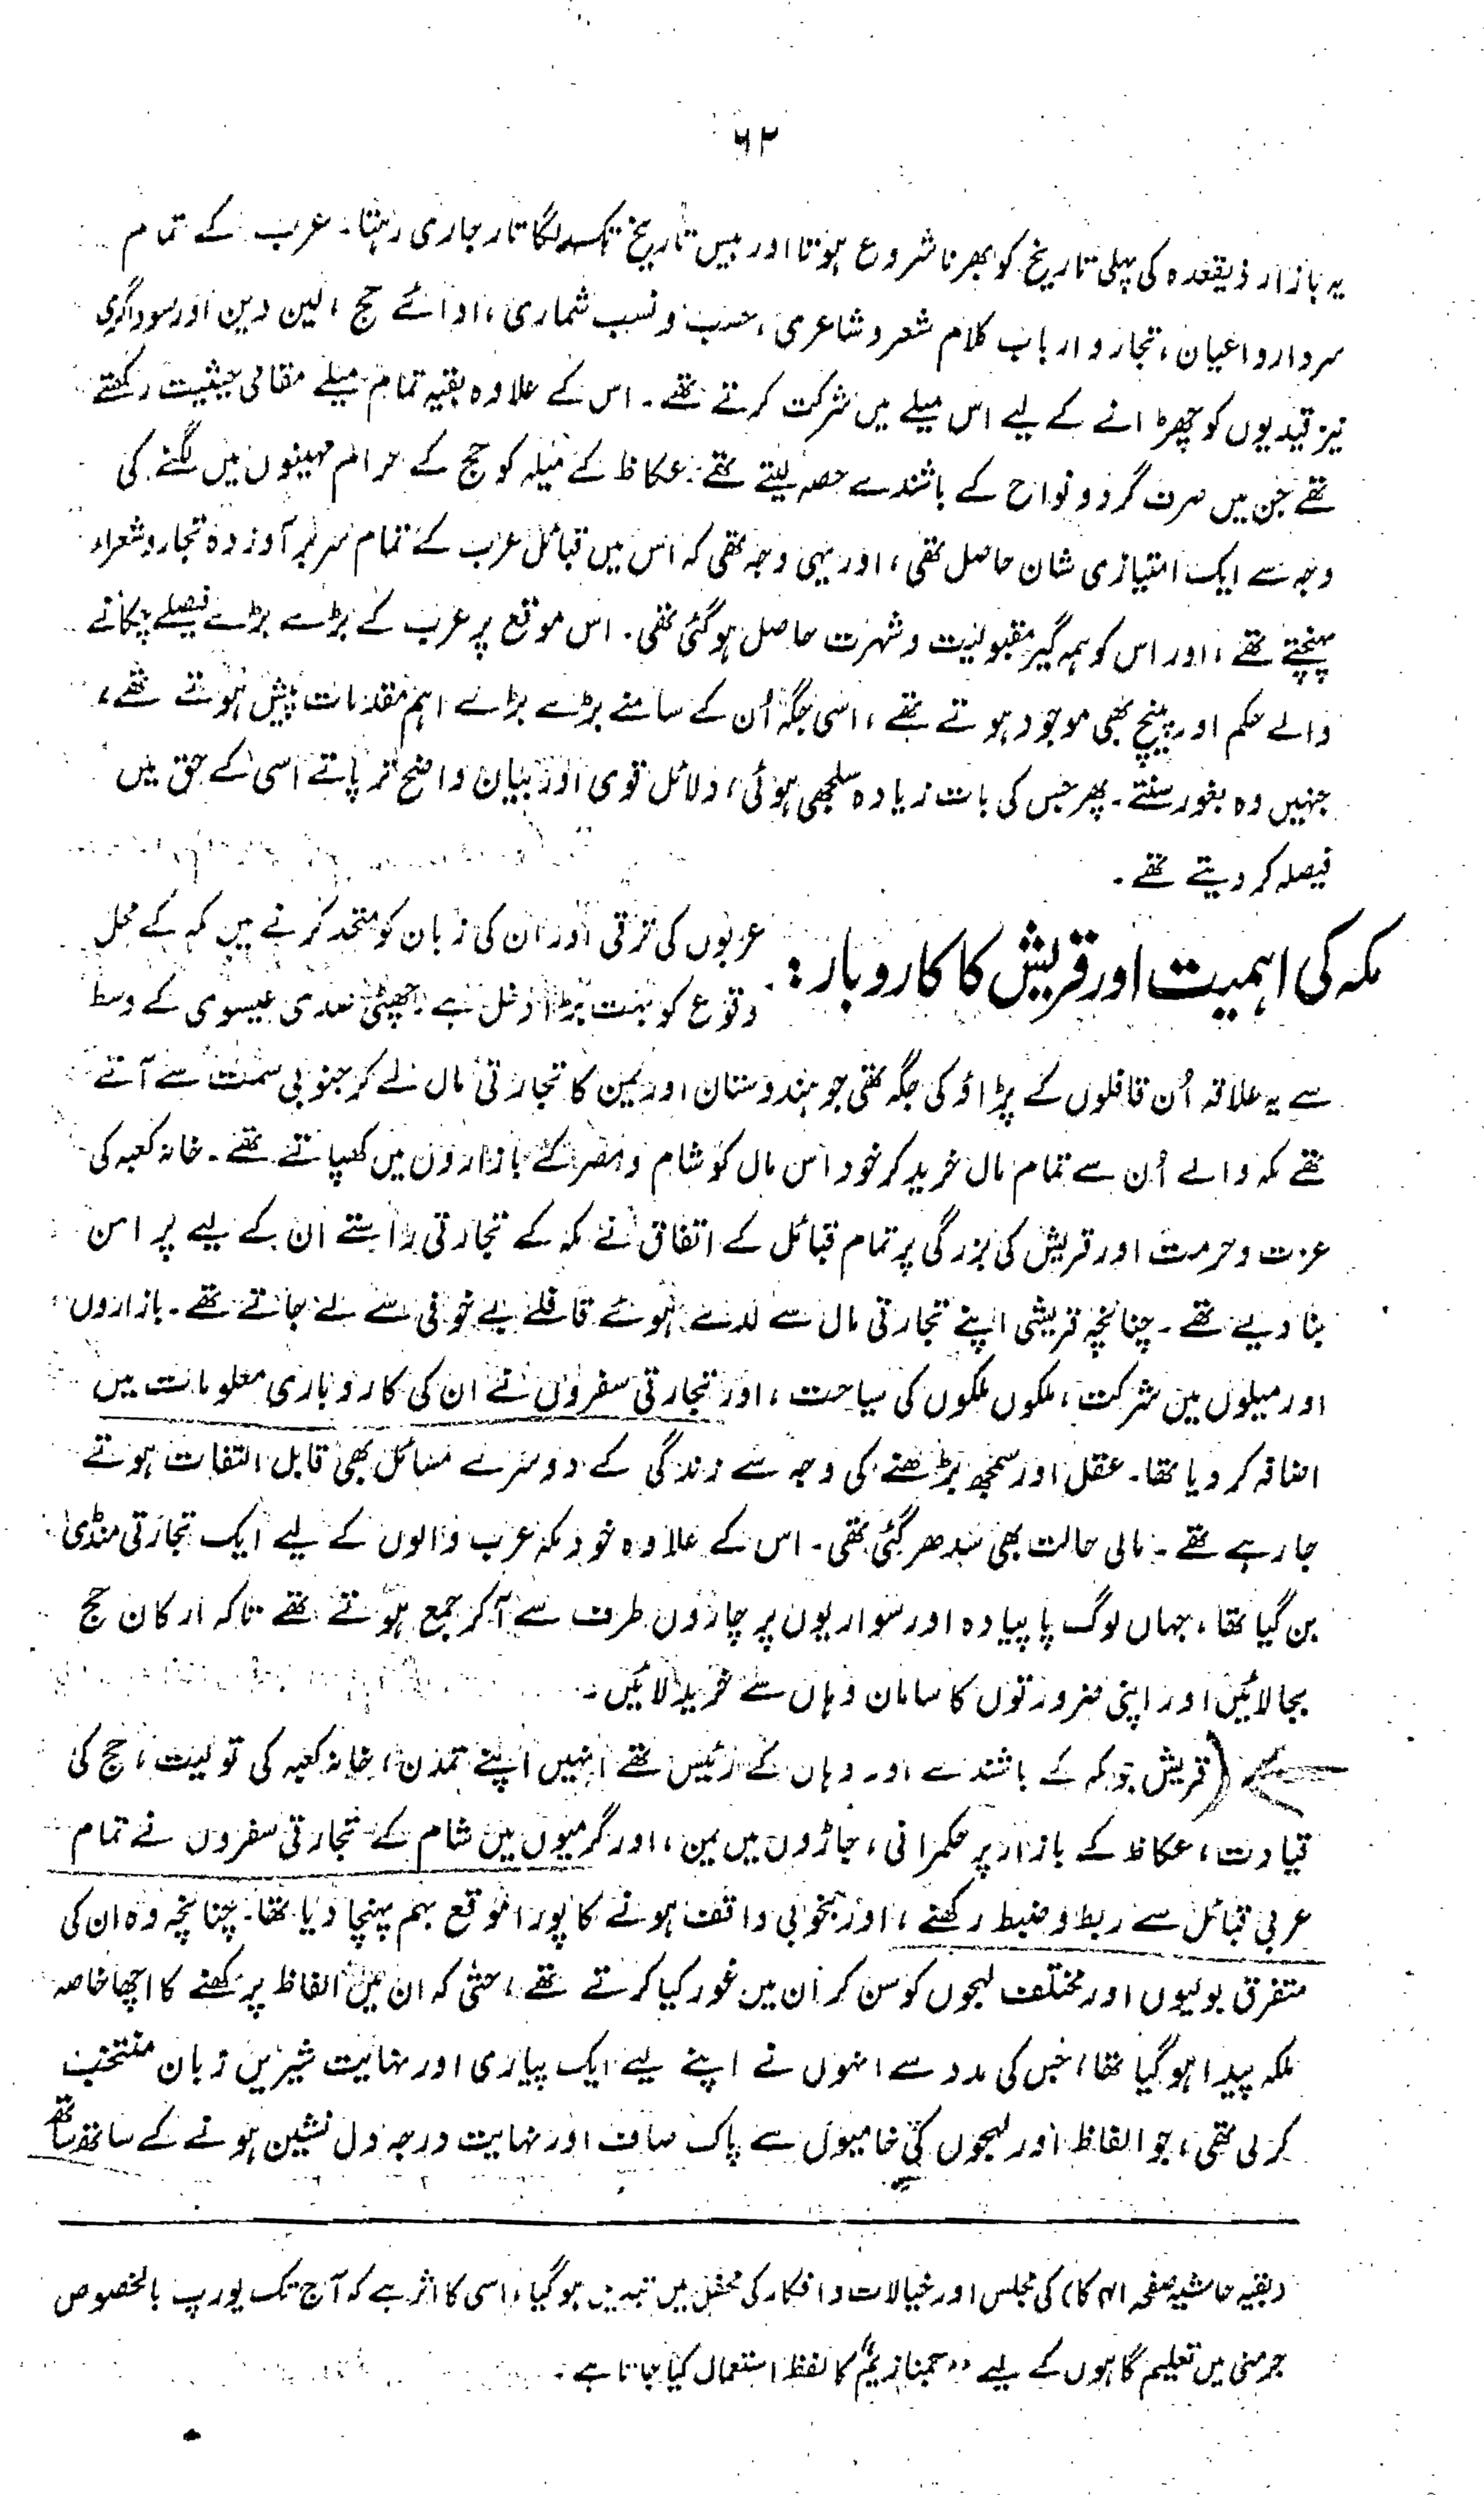 ۶۲
یہ بازار ذیقعدہ کی پہلی تاریخ کو بھرنا شروع ہوتا اور بیس تاریخ تک لگاتار جاری رہتا۔ عرب کے تمام
سردار و اعیان، تجار و ارباب کلام شعر و شاعری، حسب و نسب شماری، ادائے حج، لین دین اور سوداگری
نیز قیدیوں کو چھڑانے کے لیے اس میلے میں شرکت کرتے تھے۔ اس کے علاوہ بقیہ تمام میلے مقامی حیثیت رکھتے
تھے جن میں صرف گرد و نواح کے باشندے حصہ لیتے تھے۔ عکاظ کے میلہ کو حج کے حرام مہینوں میں لگنے کی
وجہ سے ایک امتیازی شان حاصل تھی، اور یہی وجہ تھی کہ اس میں قبائل عرب کے تمام سربرآوردہ تجار و شعراء
پہنچتے تھے، اور اس کو ہمہ گیر مقبولیت و شہرت حاصل ہو گئی تھی۔ اس موقع پر عرب کے بڑے بڑے فیصلے چکانے
والے حکم اور پنچ بھی موجود ہوتے تھے، اسی جگہ اُن کے سامنے بڑے بڑے اہم مقدمات پیش ہوتے تھے،
جنہیں وہ بغور سنتے۔ پھر جس کی بات زیادہ سلجھی ہوئی، دلائل قوی اور بیان واضح تر پاتے اسی کے حق میں
فیصلہ کر دیتے تھے۔
مکہ کی اہمیت اور قریش کا کاروبار: عربوں کی ترقی اور ان کی زبان کو متحد کرنے میں مکہ کے محل
وقوع کو بہت بڑا دخل ہے چھٹی صدی عیسوی کے وسط
سے یہ علاقہ اُن قافلوں کے پڑاؤ کی جگہ تھی جو ہندوستان اور یمن کا تجارتی مال لے کر جنوبی سمت سے آتے
تھے مکہ والے اُن سے تمام مال خرید کر خود اس مال کو شام و مصر کے بازاروں میں کھپاتے تھے۔ خانہ کعبہ کی
عزت و حرمت اور قریش کی بزرگی پر تمام قبائل کے اتفاق نے مکہ کے تجارتی راستے ان کے لیے پر امن
بنا دیے تھے۔ چنانچہ قریشی اپنے تجارتی مال سے لدے ہوئے قافلے بے خوفی سے لے جاتے تھے۔ بازاروں
اور میلوں میں شرکت، ملکوں ملکوں کی سیاحت، اور تجارتی سفروں نے ان کی کاروباری معلومات میں
اضافہ کر دیا تھا۔ عقل اور سمجھ بڑھنے کی وجہ سے زندگی کے دوسرے مسائل بھی قابل التفات ہوتے
جا رہے تھے۔ مالی حالت بھی سدھر گئی تھی۔ اس کے علاوہ خود مکہ عرب والوں کے لیے ایک تجارتی منڈی
بن گیا تھا، جہاں لوگ پا پیادہ اور سواریوں پر چاروں طرف سے آ کر جمع ہوتے تھے تاکہ ارکان حج
بجا لائیں اور اپنی ضرورتوں کا سامان وہاں سے خرید لائیں۔
(قریش جو مکہ کے باشندے اور وہاں کے رئیس تھے انہیں اپنے تمدن، خانہ کعبہ کی تولیت، حج کی
قیادت، عکاظ کے بازار پر حکمرانی، جاڑوں میں یمن، اور گرمیوں میں شام کے تجارتی سفروں نے تمام
عربی قبائل سے ربط و ضبط رکھنے، اور بخوبی واقف ہونے کا پورا موقع بہم پہنچا دیا تھا۔ چنانچہ وہ ان کی
متفرق بولیوں اور مختلف لہجوں کو سن کر اُن میں غور کیا کرتے تھے، حتیٰ کہ ان میں الفاظ پرکھنے کا اچھا خاصہ
ملکہ پیدا ہو گیا تھا، جس کی مدد سے انہوں نے اپنے لیے ایک پیاری اور نہایت شیریں زبان منتخب
کر لی تھی، جو الفاظ اور لہجوں کی خامیوں سے پاک صاف اور نہایت درجہ دل نشین ہونے کے ساتھ ساتھ
(بقیہ حاشیہ صفحہ ۶۱ کا) کی مجلس اور خیالات و افکار کی محفل میں تبدیل ہو گیا، اسی کا اثر ہے کہ آج تک یورپ بالخصوص
جرمنی میں تعلیم گاہوں کے لیے "جمنازیم" کا لفظ استعمال کیا جاتا ہے۔